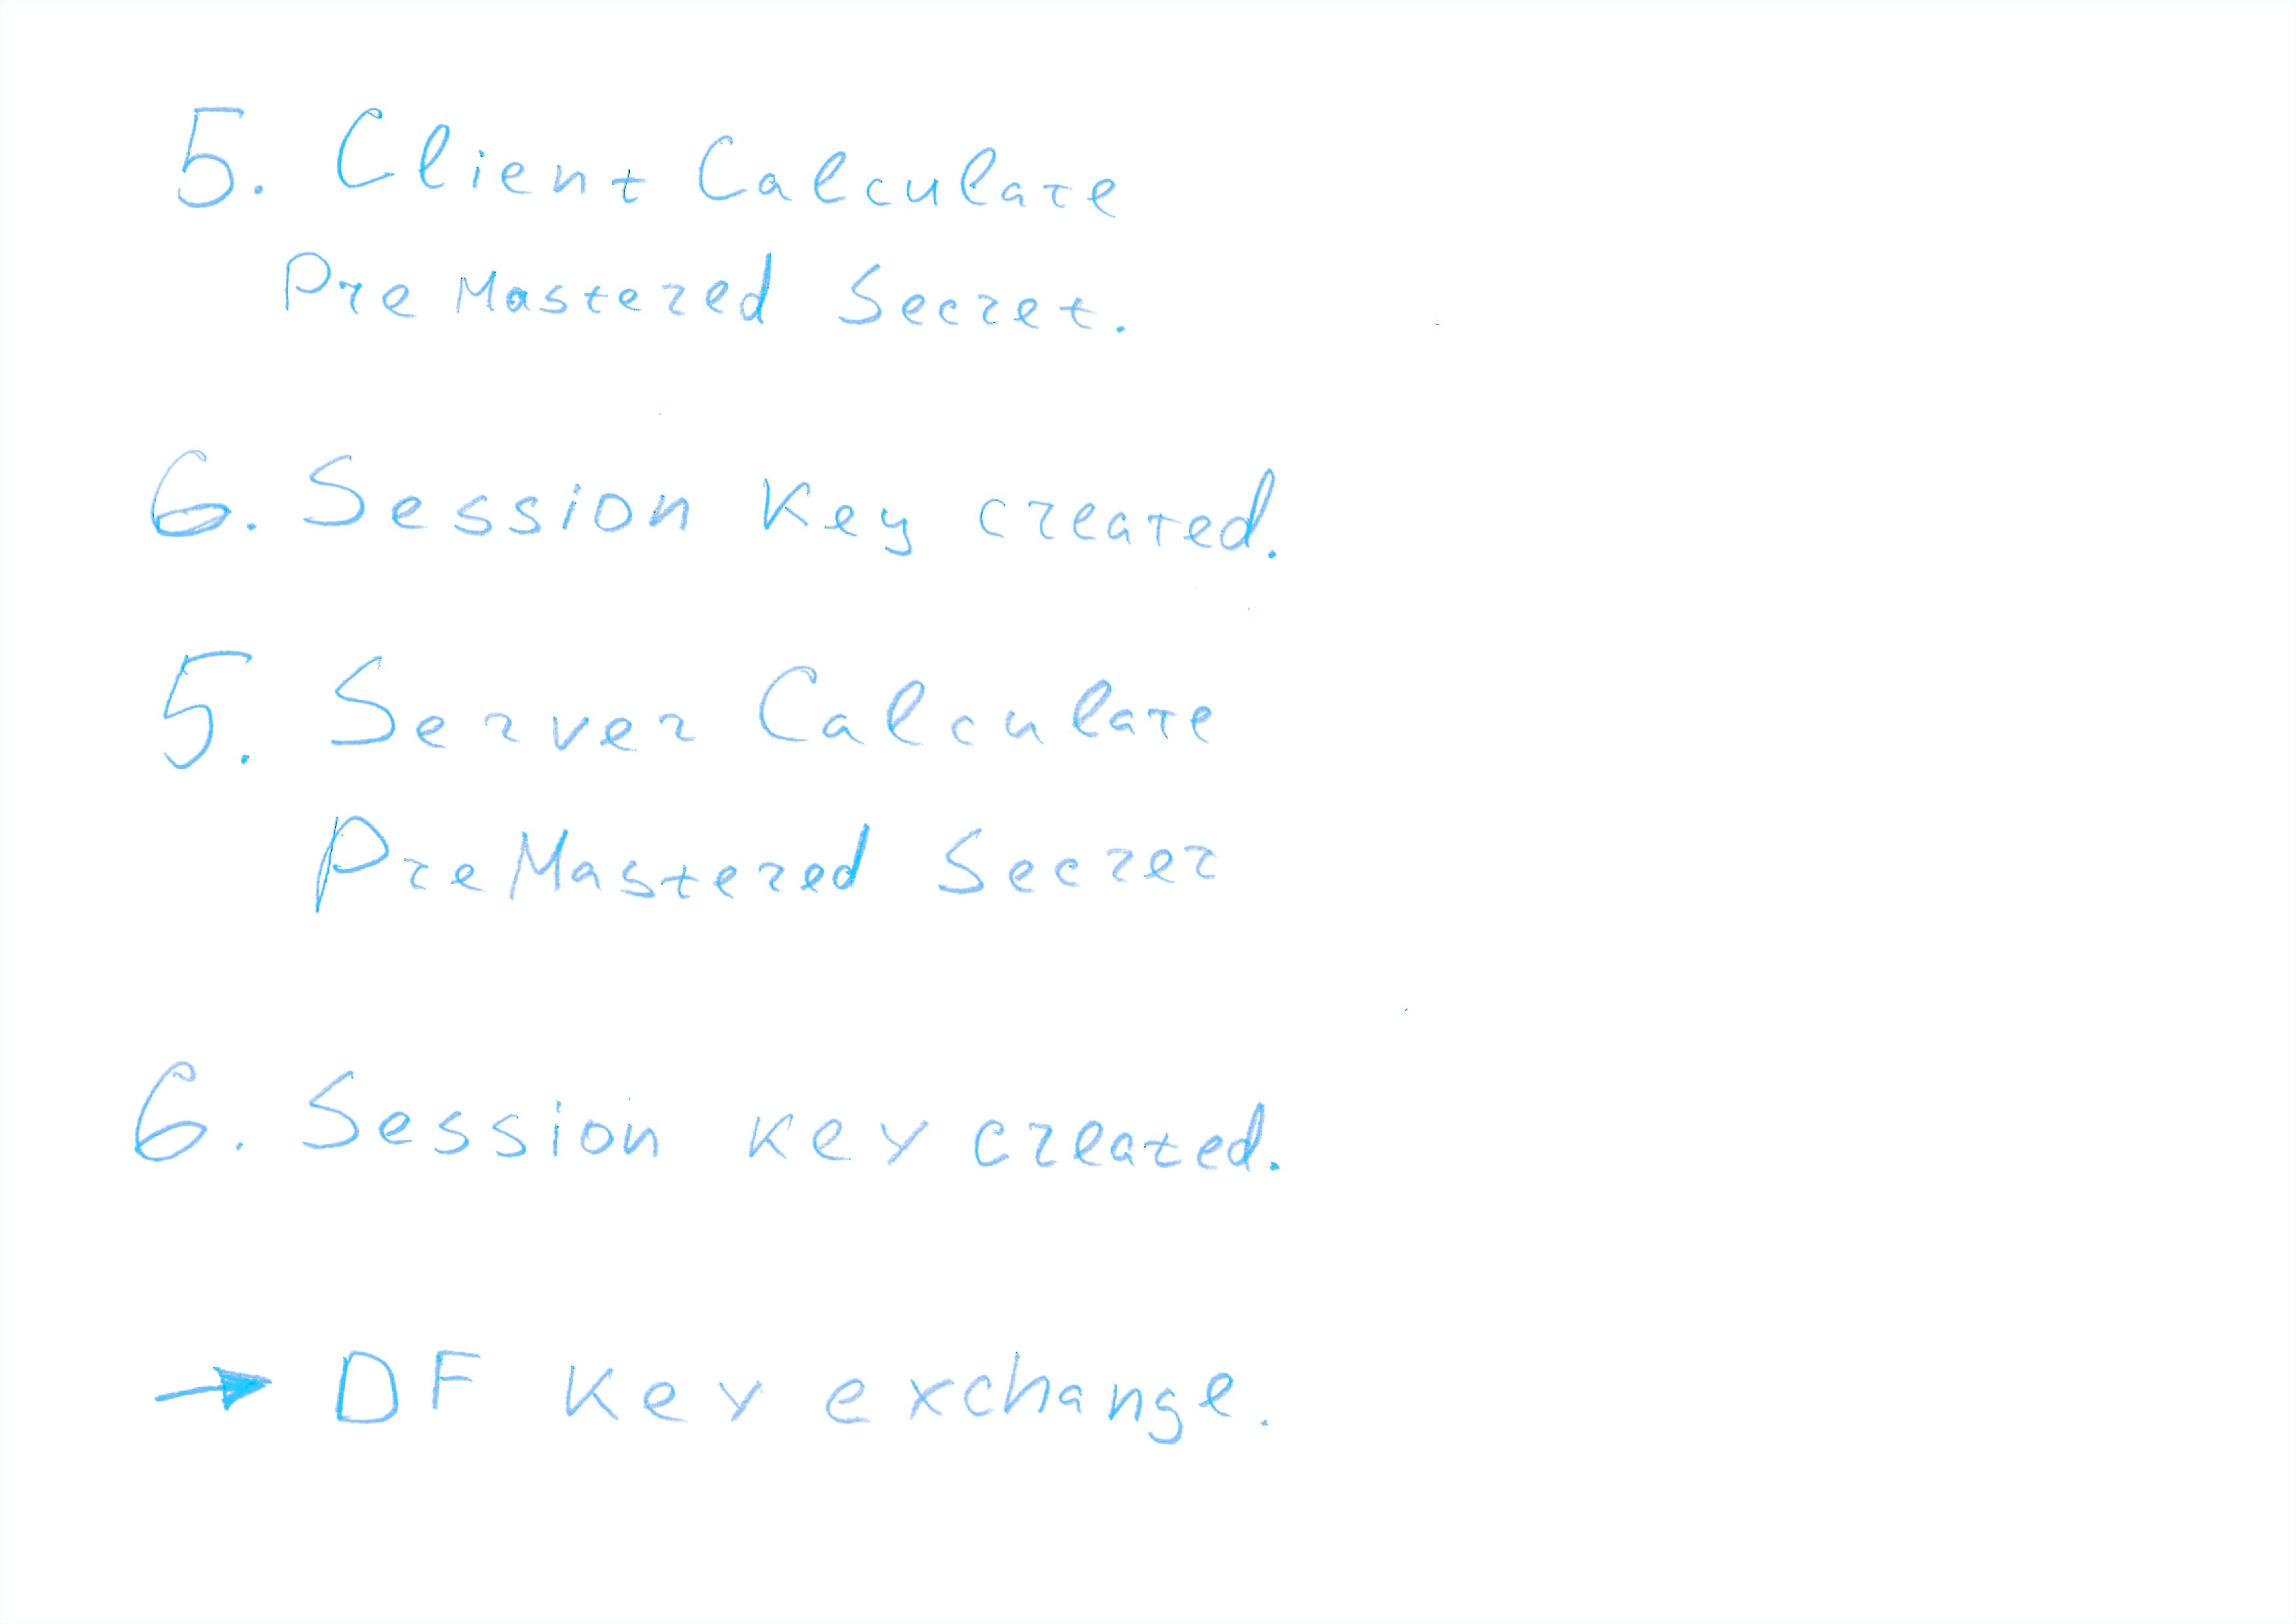 5. Client Calculate
Pre Mastered Secret.
6. Session Key created.
5. Server Calculate
PreMastered Secret
6. Session key created.
→ DF Key exchange.